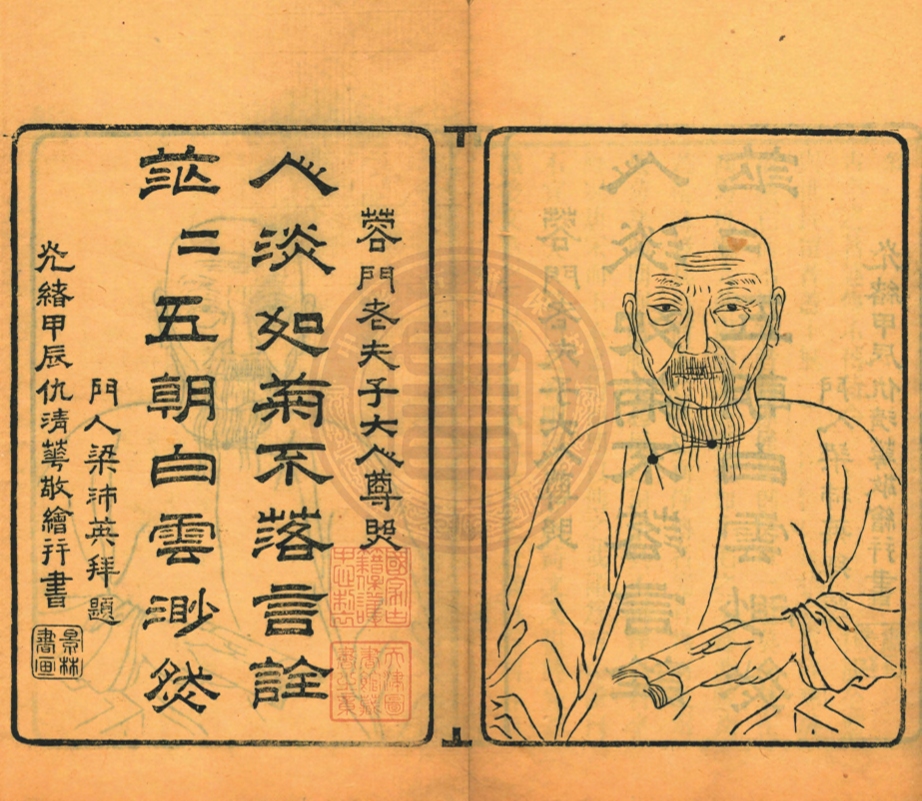 蓉門老夫子大人尊照
人淡如菊不落言詮
茫二五朝白雲渺然
門人梁沛英拜題
光緒甲辰仇清華敬繪并書
景林書画
天津圖書館藏書之章